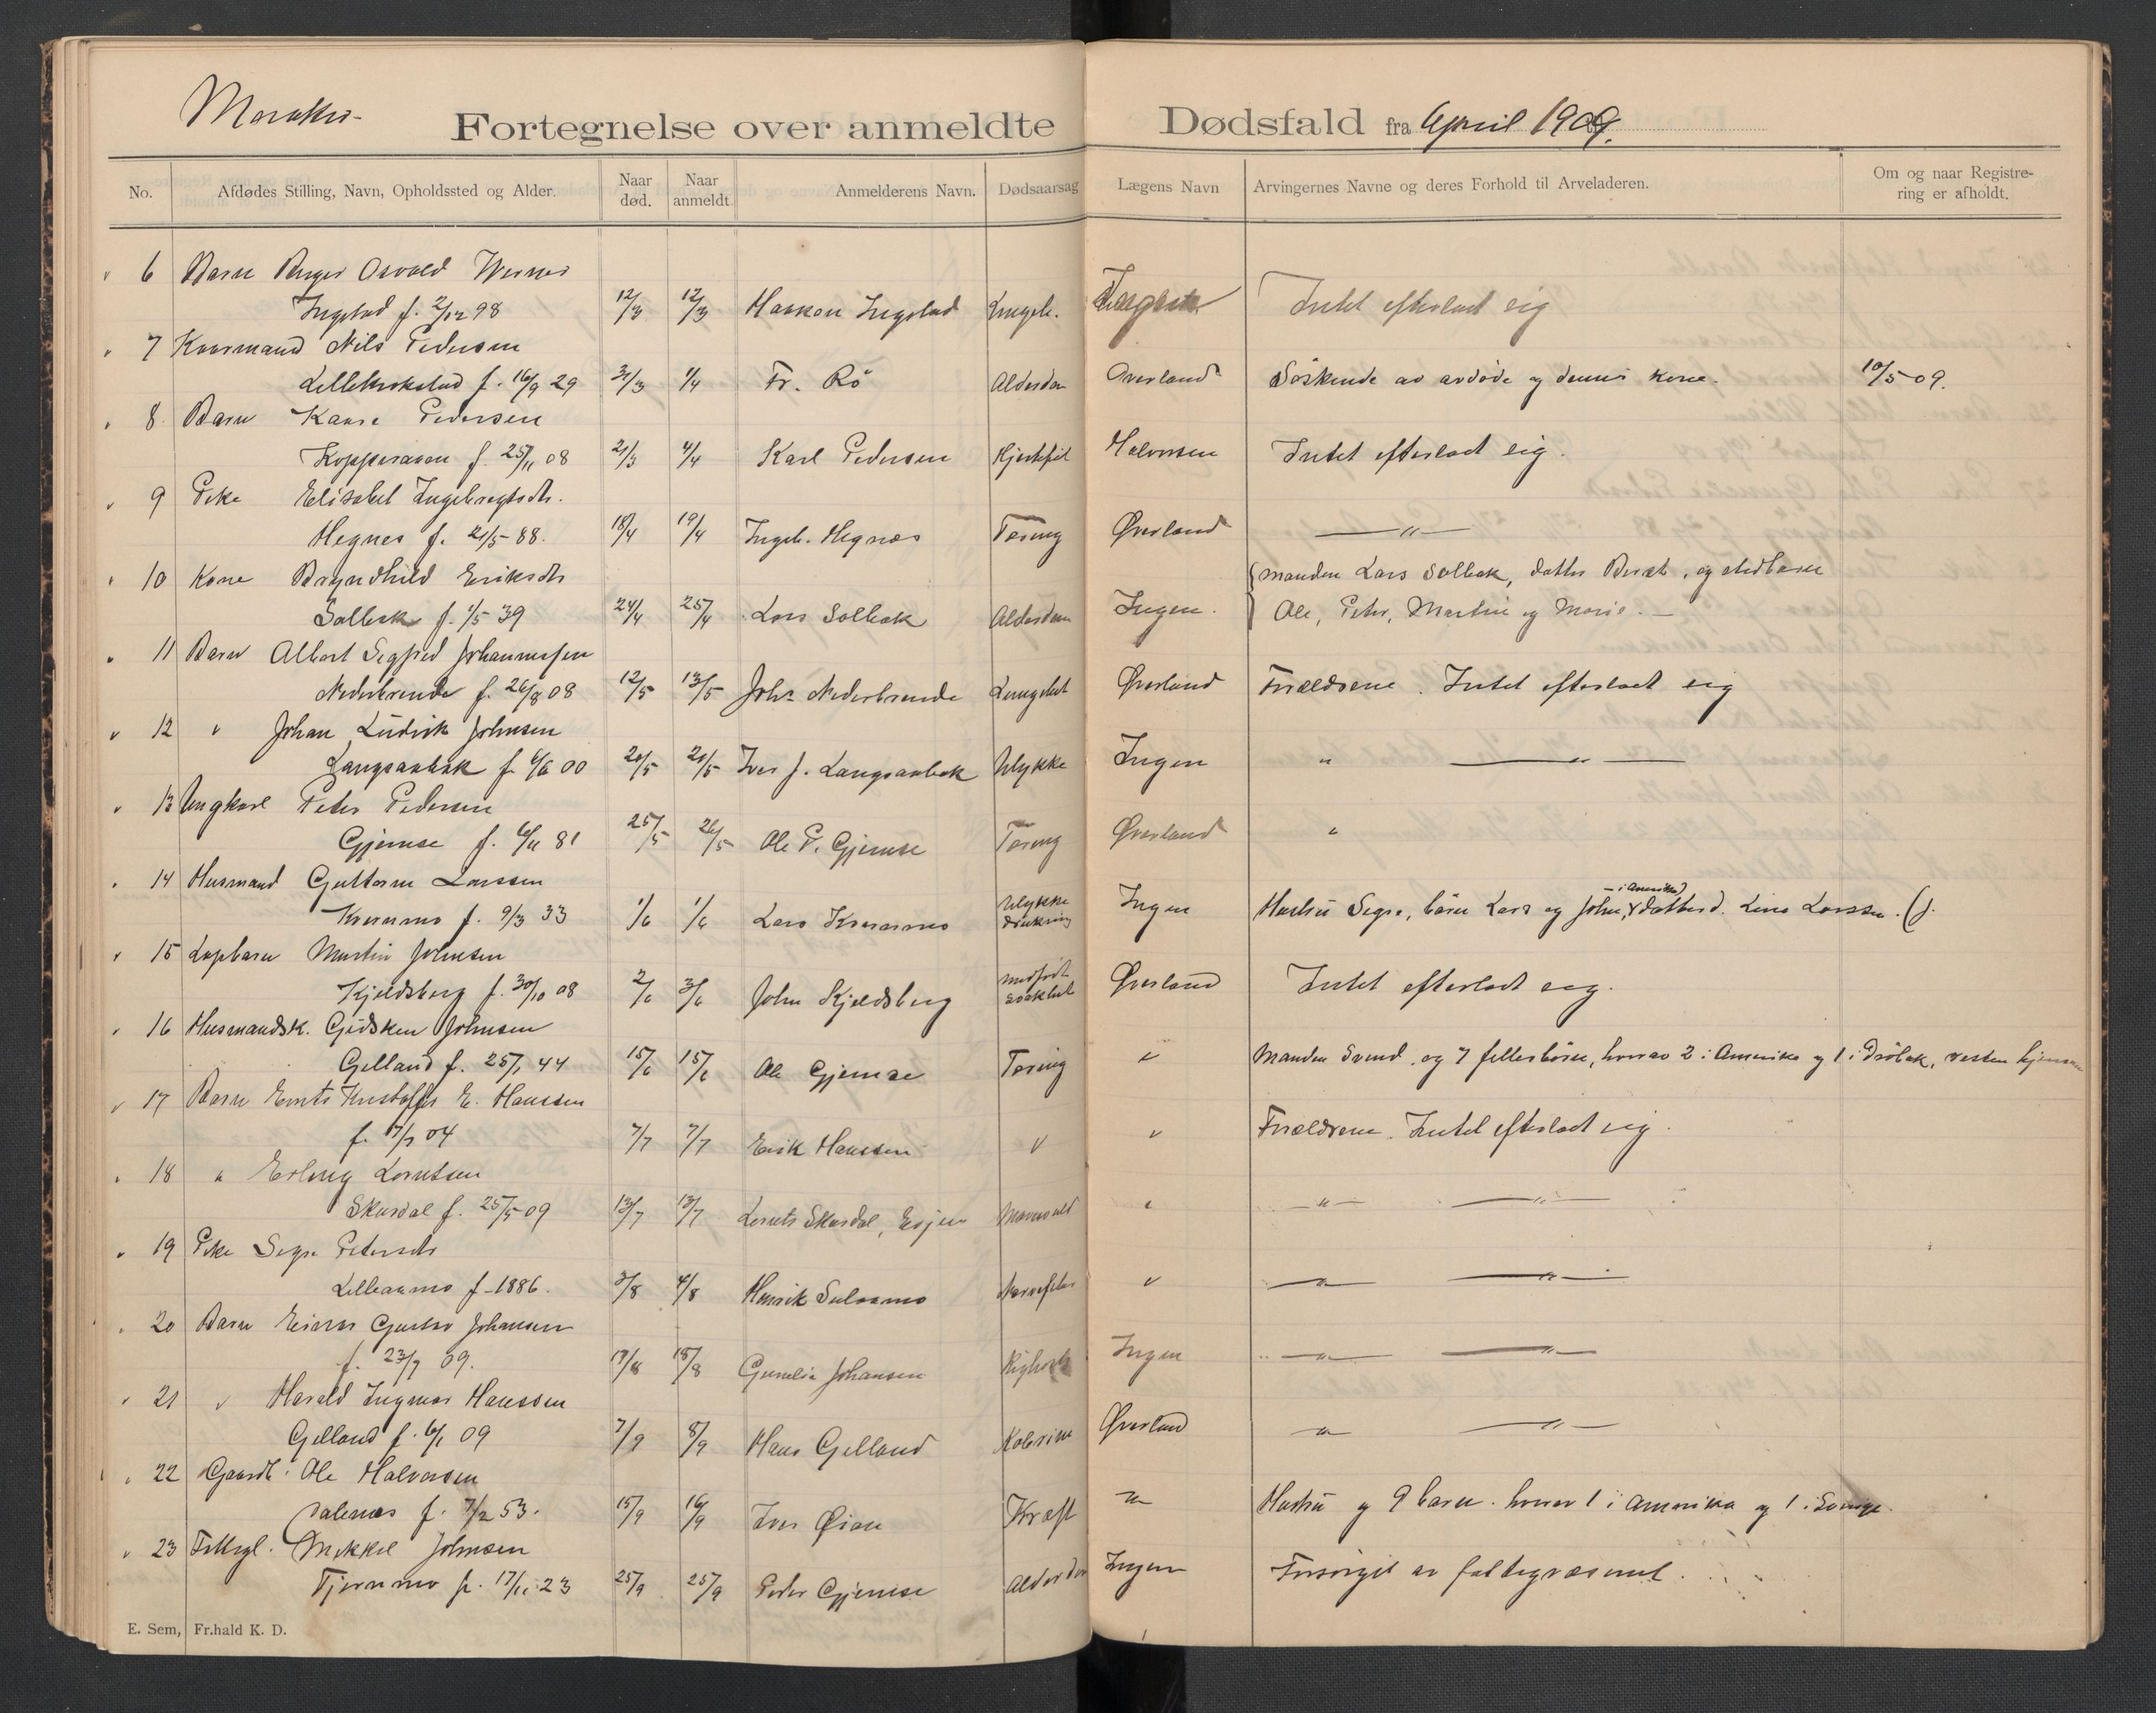 Fortegnelse over anmeldte Dødsfald fra April 1909.
No. Afdødes Stilling, Navn, Opholdssted og Alder. Naar død. Naar anmeldt. Anmelderens Navn. Dødsaarsag Lægens Navn Arvingernes Navne og deres Forhold til Arveladeren. Om og naar Registrering er afholdt.
6 Barn Birger Osvald Werner
Ingstad f. 2/12 98 12/3 12/3 Haakon Ingstad Lungeb. Intet efterladt sig
7 Kaarmand Nils Pedersen
f. 16/9 29 31/3 1/4 Fr. Rö Alderdom Överland Söskende av avdöde og dennes kone. 10/5 09.
8 Barn Kaare Pedersen
Kopperaaen f. 25/11 08 21/3 4/4 Karl Pedersen Hjertefeil Halvorsen Intet efterladt sig.
9 Pike Elisabet Ingebregtsdt.
Hegnes f. 21/5 88. 18/4 19/4 Ingeb. Hegnæs Tæring Øverland —"—
10 Kone Bryndhild Eriksdtr manden Lars Solbak, datter Beret, og stedbarn
Solbak f. 1/5 39 24/4 25/4 Lars Solbak Alderdom Ingen. Ole, Peter, Martin og Marie. —
11 Barn Albert Sigfred Johannesen
f. 26/8 08 12/5 13/5 Lungebet Øverland Forældrene. Intet efterladt sig
12 " Johan Ludvik Johnsen
Langsaabak f. 6/6 00 20/5 21/5 Iver J. Langsaabak Ulykke Ingen " —"—
13 Ungkarl Peter Pedersen
Gjemse f. 6/11 81 25/5 26/5 Ole P. Gjemse Tæring Øverland "
14 Husmand Guttorm Larssen Ulykke — i Amerika
Kvernmo f. 9/3 33 1/6 1/6 Lars Kvernmo drukning Ingen Hustru Sigr., börn Lars og John, datterd. Lina Larssen.
15 Lapbarn Martin Johnsen medfödt
Kjeldsberg f. 30/10 08 2/6 3/6 John Kjeldsberg svakhet Øverland Intet efterladt sig.
16 Husmandsk. Gjdsken Johnsen
Gilland f. 25/1 44 15/6 15/6 Ole Gjemse Tæring " Manden Svend. og 7 fellesbörn, hvorav 2 i Amerika og 1 i Dröbak, resten hjemme
17 Barn Ernts Kristoffer E. Hanssen
f. 04 7/7 7/7 Erik Hanssen " " Forældrene. Intet efterladt sig.
18 " Erling Lorntsen
Skurdal f. 25/5 09 13/7 13/7 Lornts Skurdal, Evjen " —"— —"—
19 Pike Sigr. Petersdtr
Lilleaamo f. 1886. 3/8 4/8 Henrik Sulaamo " —"— —"—
20 Barn Einar Gustav Johansen
f. 23/7 09. 17/8 18/8 Gunelia Johansen Kighoste Ingen —"— —"—
21 " Harald Ingmar Hanssen
Gilland f. 6/1 09 7/9 8/9 Hans Gilland Kolerine Øverland —"— —"—
22 Gaardb. Ole Halvorsen
Dalenæs f. 7/12 53. 15/9 16/9 Iver Øian Kræft " Hustru og 9 barn. hvorav 1 i Amerika og 1 i Sverige.
23 Fattigl. Mikkel Johnsen
Tjernmo f. 17/11 23 25/9 25/9 Peder Gjemse Alderdom Ingen Forsörget av fattigvæsenet.
E. Sem, Fr.hald K. D.